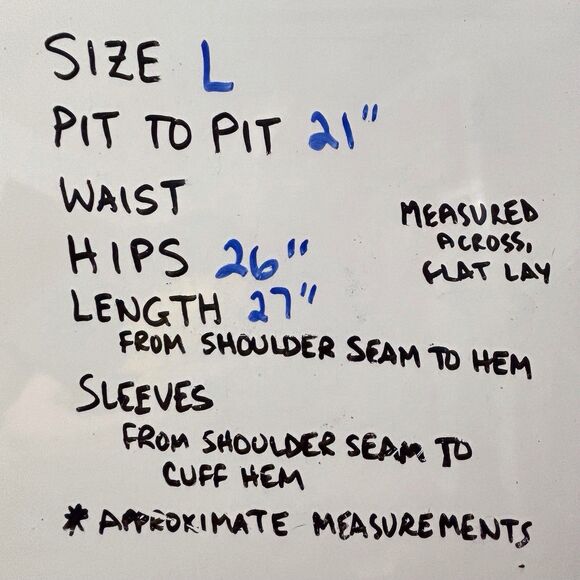 SIZE L
PIT TO PIT 21"
WAIST
HIPS 26"
MEASURED
ACROSS,
FLAT LAY
LENGTH 27"
FROM SHOULDER SEAM TO HEM
SLEEVES
FROM SHOULDER SEAM TO
CUFF HEM
* APPROXIMATE MEASUREMENTS